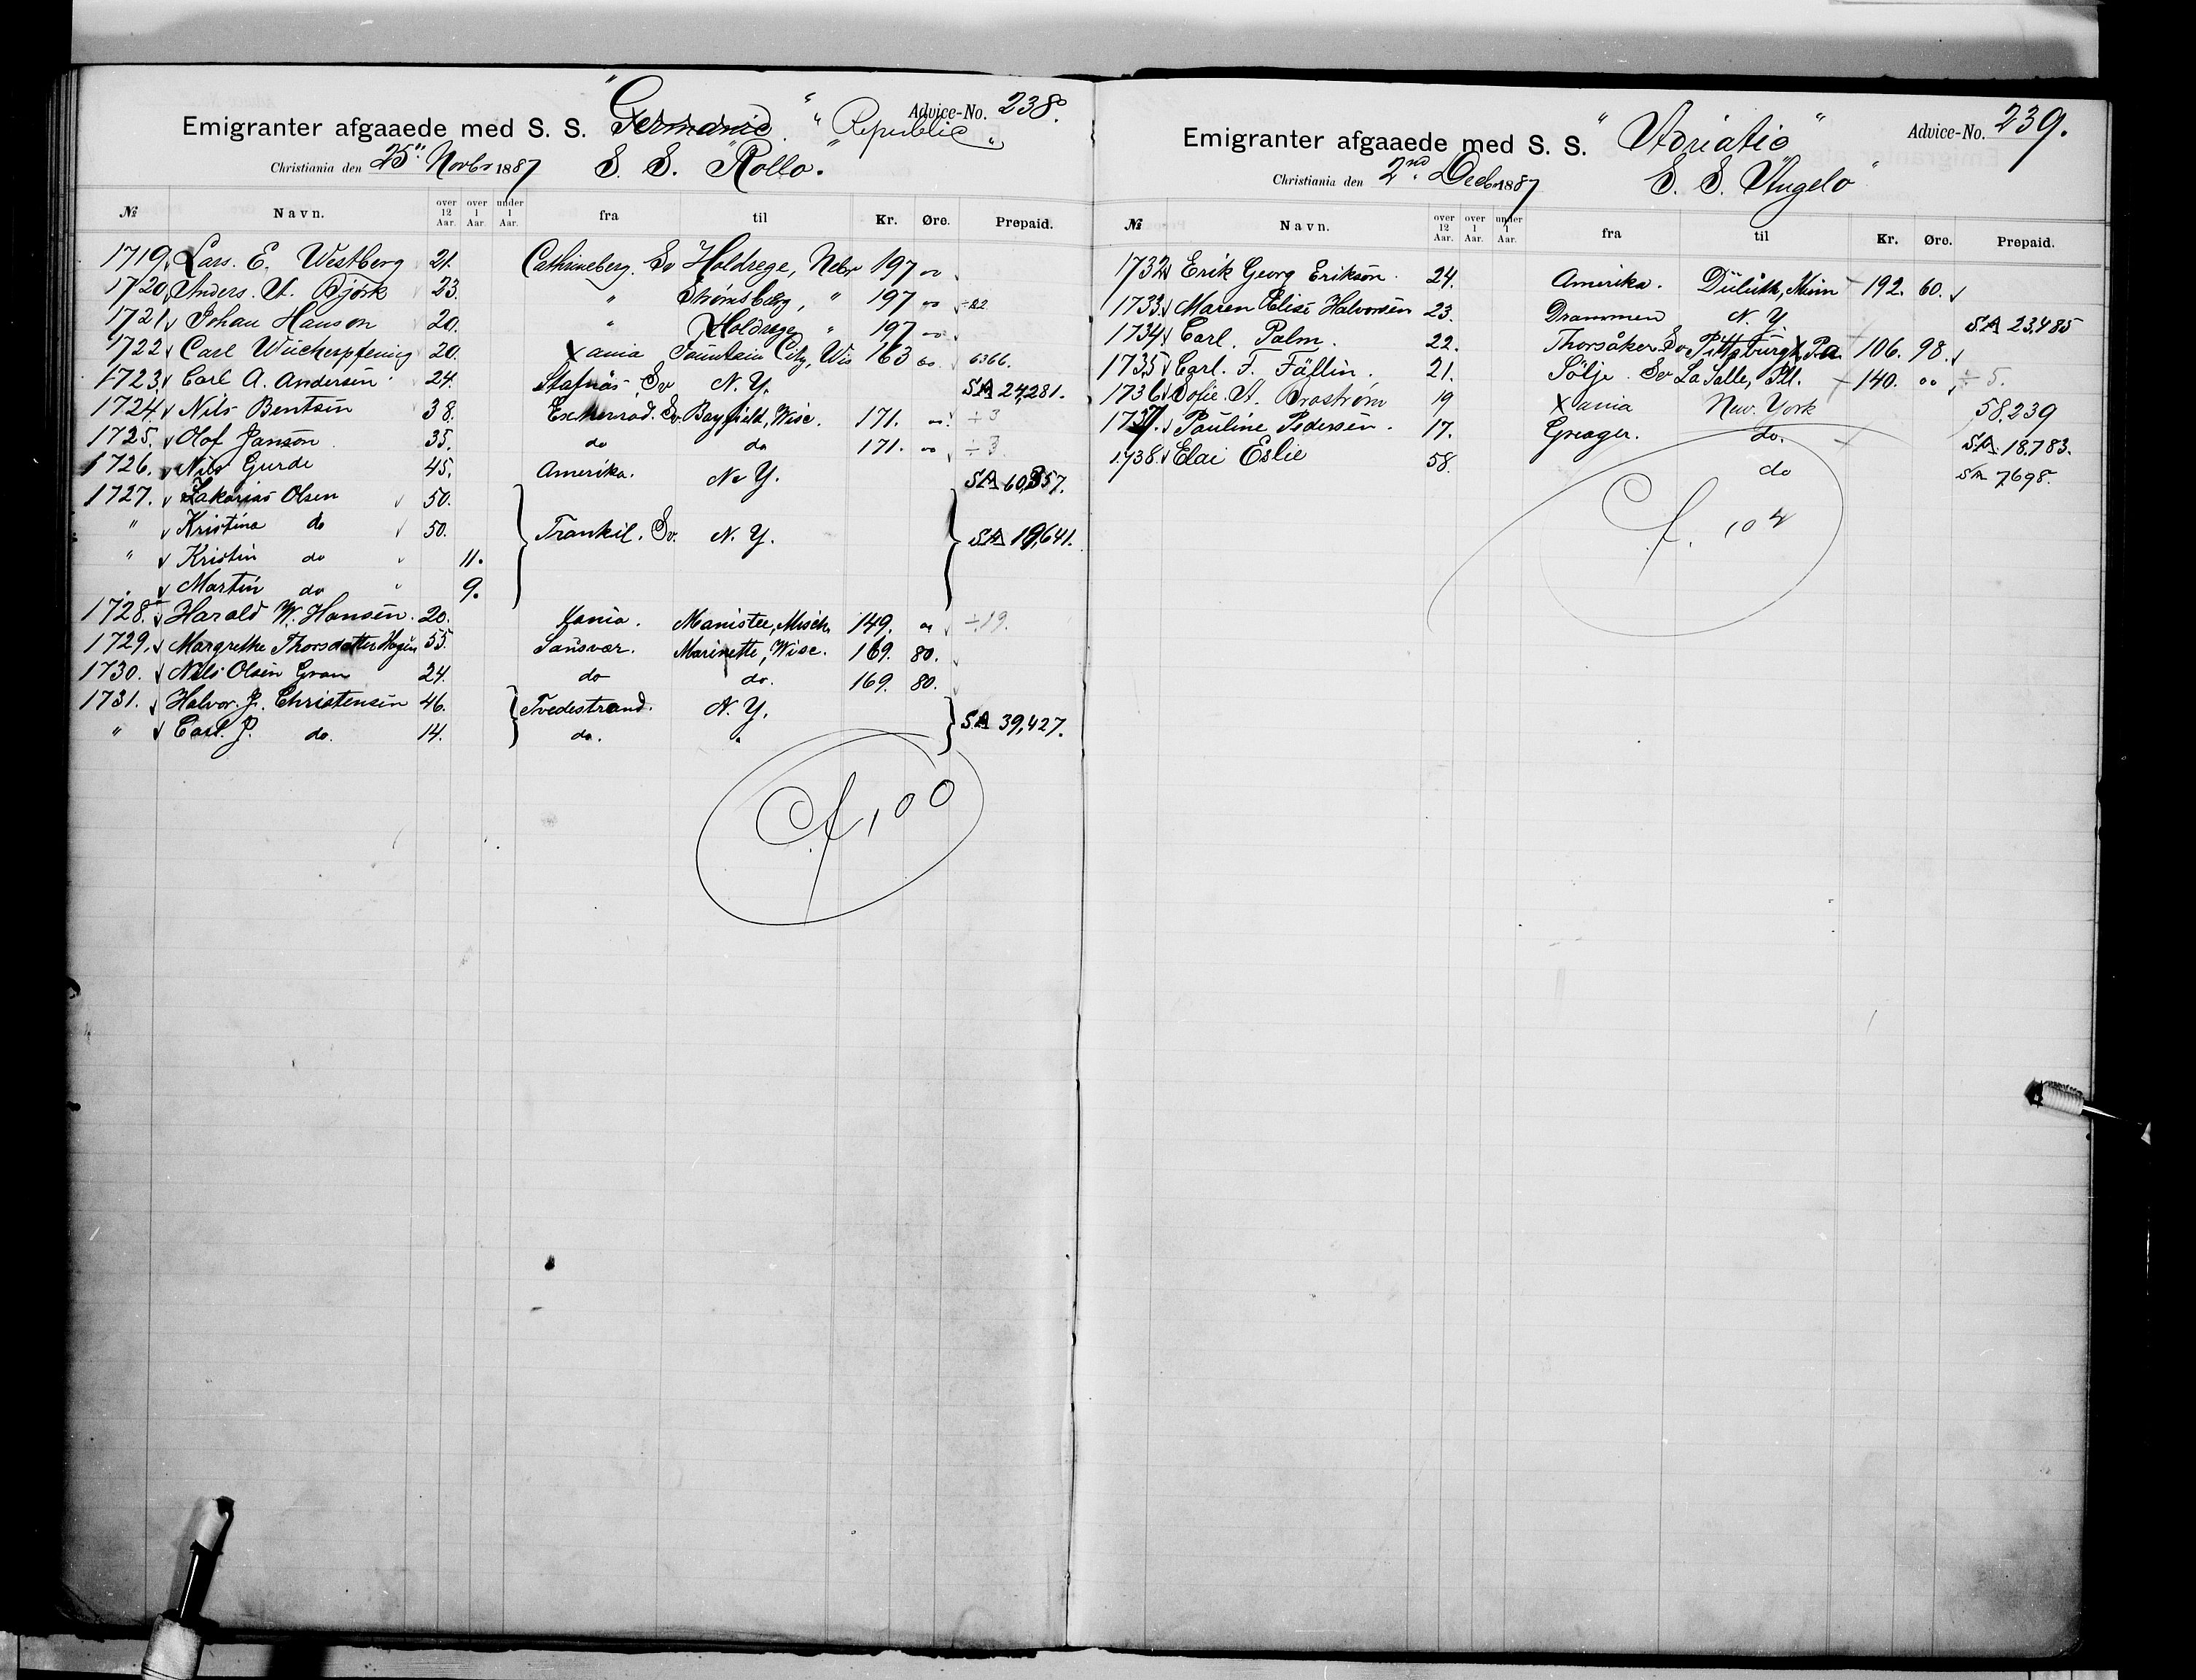 Emigranter afgaaede med S. S. "Germanic" "Republic" Advice-No. 238.
Christiania den 25" Novbr 1887 S. S. "Rollo."
№ Navn. over 12 Aar. over 1 Aar. under 1 Aar. fra til Kr. Øre. Prepaid.
1719. Lars. E. Westberg 21. Cathrineberg. Sv Holdrege, Nebr 197 00
1720. Anders. A. Björk 23. " Strømsberg, " 197 00 ÷22
1721. Johan Hanson 20. " Holdrege " 197 00
1722 Carl Wucherpfening 20. Xania Fountain City, Wis 163 60 6366.
1723. Carl A. Andersen 24. Stafnäs Sv N. Y. SA 24,281.
1724. Nils Bentsen 38. Sv. Bayfield, Wisc. 171. 00 ÷ 3
1725. Olof Janson 35. do do 171. 00 ÷ 3
1726. Nils Gurde 45. Amerika. N. Y. SA 60,357.
1727. Zakarias Olsen 50.
" Kristina do 50. Trankil. Sv. N. Y. SA 19,641.
" Kristin do 11.
" Martin do 9.
1728. Harald W. Hansen. 20. Xania. Manistee, Mich 149. 00 ÷19.
1729. Margrethe Thorsdatter Hagen 55. Sansvær. Marinette, Wisc. 169. 80.
1730. Nils Olsen Gran 24. do do. 169. 80.
1731. Halvor. J. Christensen 46. Tvedestrand. N. Y. SA 39,427.
" Carl. J. do. 14. do. "
Cf. 100
Emigranter afgaaede med S. S. "Adriatic" Advice-No. 239.
Christiania den 2nd Decbr 1887 S. S. "Angelo"
№ Navn. over 12 Aar. over 1 Aar. under 1 Aar. fra til Kr. Øre. Prepaid.
1732 Erik Georg Erikson. 24. Amerika. Duluth, Minn 192. 60.
1733. Maren Elise Halvorsen 23. Drammen N. Y. SA 23,485
1734 Carl. Palm. 22. Thorsåker. Sv Pittsburgh, Pa. 106. 98.
1735 Carl. F. Fällin. 21. Sölje. Sv La Salle, Ill. 140. 00 ÷ 5.
1736 Sofie. A. 19 Xania New. York 58,239
1737. Pauline Pedersen. 17. do. SA 18,783.
1738. Elai Eslie 58. do SA 7,698.
Cf. 104